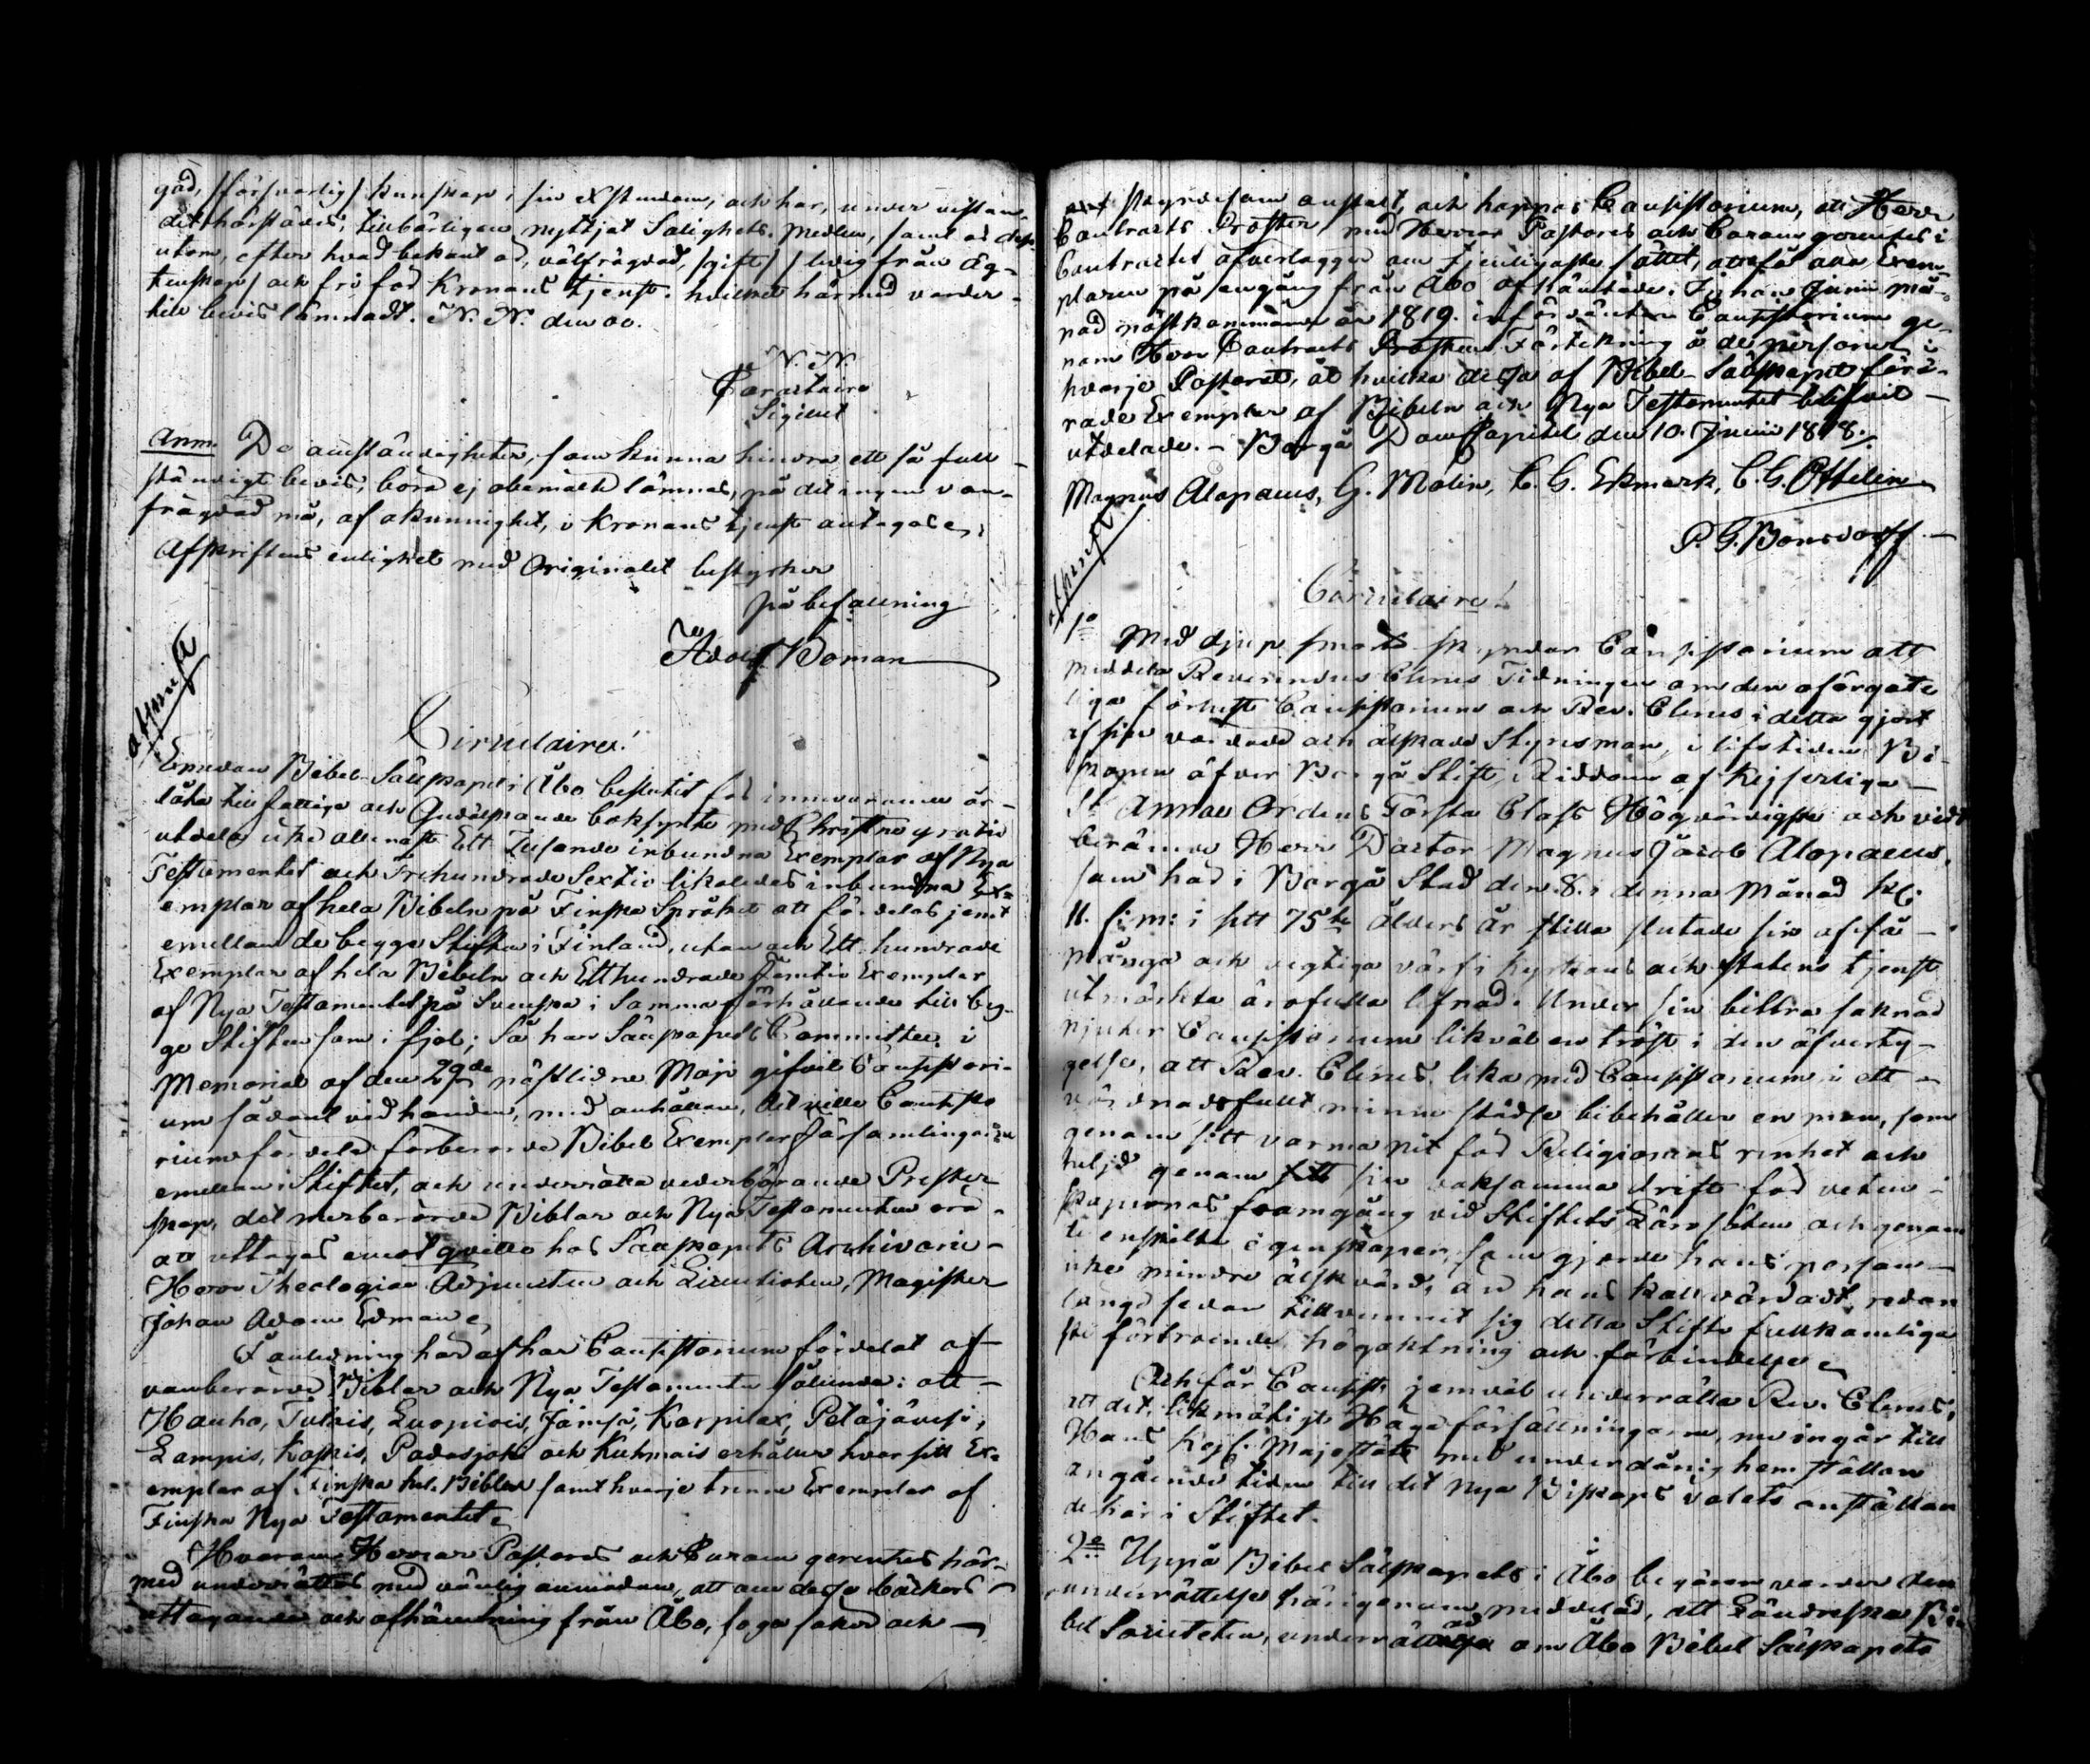 god, /försvarlig/ kunskap i sin Christendom, och har, under vistan-
det härstädes, tillbörligen nyttjat Salighets Medlen, samt är dess
utom, efter hvad bekant är, välfrägdad, /gift/ /ledig från äg-
tenskap/ och fri för Kronans tjenst. hvilket härmed varder
till bevis lämnadt. N. N. den oo.
N. N.
Sigillet
Anm. De omständigheter, som kunna hindra ett så full-
ständigt bevis, böra ej obemält lämnas, på det ingen van-
frägdad må, af okunnighet, i Kronans tjenst antagas.
Afskriftens enlighet med Originalet bestyrker
på befallning
Adolf Boman
Afskrift
Circulaire!
Emedan Bibel-Sällskapet i Åbo beslutit för innevarande år
låta till fattiga och Gudälskande boksynte med Christne gratis
utdela icke allenast Ett Tusende inbundna Exemplar af Nya
Testamentet och Trehundrade Sextio likaledes inbundna Ex-
emplar af hela Bibeln på Finska Språket att fördelas jemt
emellan de begge Stiften i Finland, utan och Ett hundrade
Exemplar af hela Bibeln och Etthundrade Femtio Exemplar
af Nya Testamentet på Svenska i samma förhållande till beg-
ge Stiften som i fjol; Så har Sällskapets Committee i
Memorial af den 29de nästlidne Maji gifvit Consistori-
um sådant vid handen, med anhållan, det ville Consisto
rium fördela förberörde Bibel Exemplar Församlingarne
emellan i Stiftet, och underrätta vederbörande Prester-
skap, det merberörde Biblar och Nya Testamenten äro
att uttagas emot qvitto hos Sällskapets Archivarie
Herr Theologiae Adjuncten och Licentiaten, Magister
Johan Adam Edman.
I anledning häraf har Consistorium fördelat of-
vanberörde Biblar och Nya Testamente sålunda: att
Hauho, Tulois, Luopiois, Jämsä, Korpilax, Petäjävesi,
Lampis, Koskis, Padasjoki och Kuhmois erhåller hvar sitt Ex-
emplar af Finska hel. Biblar samt hvarje trenne Exemplar af
Finska Nya Testamentet.
Hvarom Herrar Pastores och Curam gerentes här-
med underrättas med vänlig anmodan, att om desse böckers
uttagande och afhämtning från Åbo, foga saker och
skyndesam anstalt, och hoppas Consistorium, att Herr
Contracts Prosten med Herrar Pastores och Curam gerentes i
Contractet öfverlägger om tjenligaste sättet, att få alla Exem
plaren på en gång från Åbo afhämtade. Inom Junii må-
nad nästkommande år 1819. införväntar Consistorium ge-
nom Herr Contracts Prosten Förtekning å de personer i
hvarje Pastorat, åt hvilka dessa af Bibel-Sällskapet förä-
rade Exemplar af Bibeln och Nya Testamentet blifvit
utdelade. – Borgå DomCapitel den 10. Junii 1818.
Magnus Alopaeus, G. Molin, C. G. Ekmark, C. G. Ottelin
P. G. Bonsdorff.
Afskrift
Circulaire!
1o Med djup smärta skyndar Consistorium att
meddela Reverendus Clerus Tidningen om den oförgäte
liga förlust Consistorium och Rev. Clerus i detta gjort
af sin vördade och älskade Styresman, i lifstiden Bi-
skopen öfver Borgå Stift, Riddaren af Kejserliga
St Annae Ordens Första Class Högvördigste och vidt
berömde Herr Doctor Magnus Jacob Alopaeus,
som här i Borgå Stad den 8. i denna Månad kl.
11. f: m: i sitt 75te Ålders år stilla slutade sin af få
många och vigtiga värf i Kyrkans och Statens tjenst
utmärkta ärofulla lefnad. Under sin bittra saknad
njuter Consistorium likväl en tröst i den öfverty-
gelse, att Rev. Clerus lika med Consistorium i ett
vördnadsfullt minne städse bibehåller en man, som
genom sitt varma nit för Religionens renhet och
helgd genom sin verksamma drift för veten-
skapernas framgång vid Stiftets Läro säten och genom
de enskilta egenskaper, som gjorde hans person
icke mindre älskvärd, än hans kall vördadt, redan
längesedan tillvunnit sig detta Stifts fullkomliga
ste förtroende, högaktning och förbindelse.
Och får Consist. jemväl underrätta Rev. Clerus,
att det, likmätigt Höga författningarne, nu ingår till
Hans Kejs. Majestät med underdånig hemställan
angående tiden till det Nya Biskops valets anställan
de här i Stiftet.
2o Uppå Bibel Sällskapets i Åbo begäran varder den
underrättelse härigenom meddelad, att Londonska Bi
bel Societeten, underrättad om Åbo Bibel Sällskapets